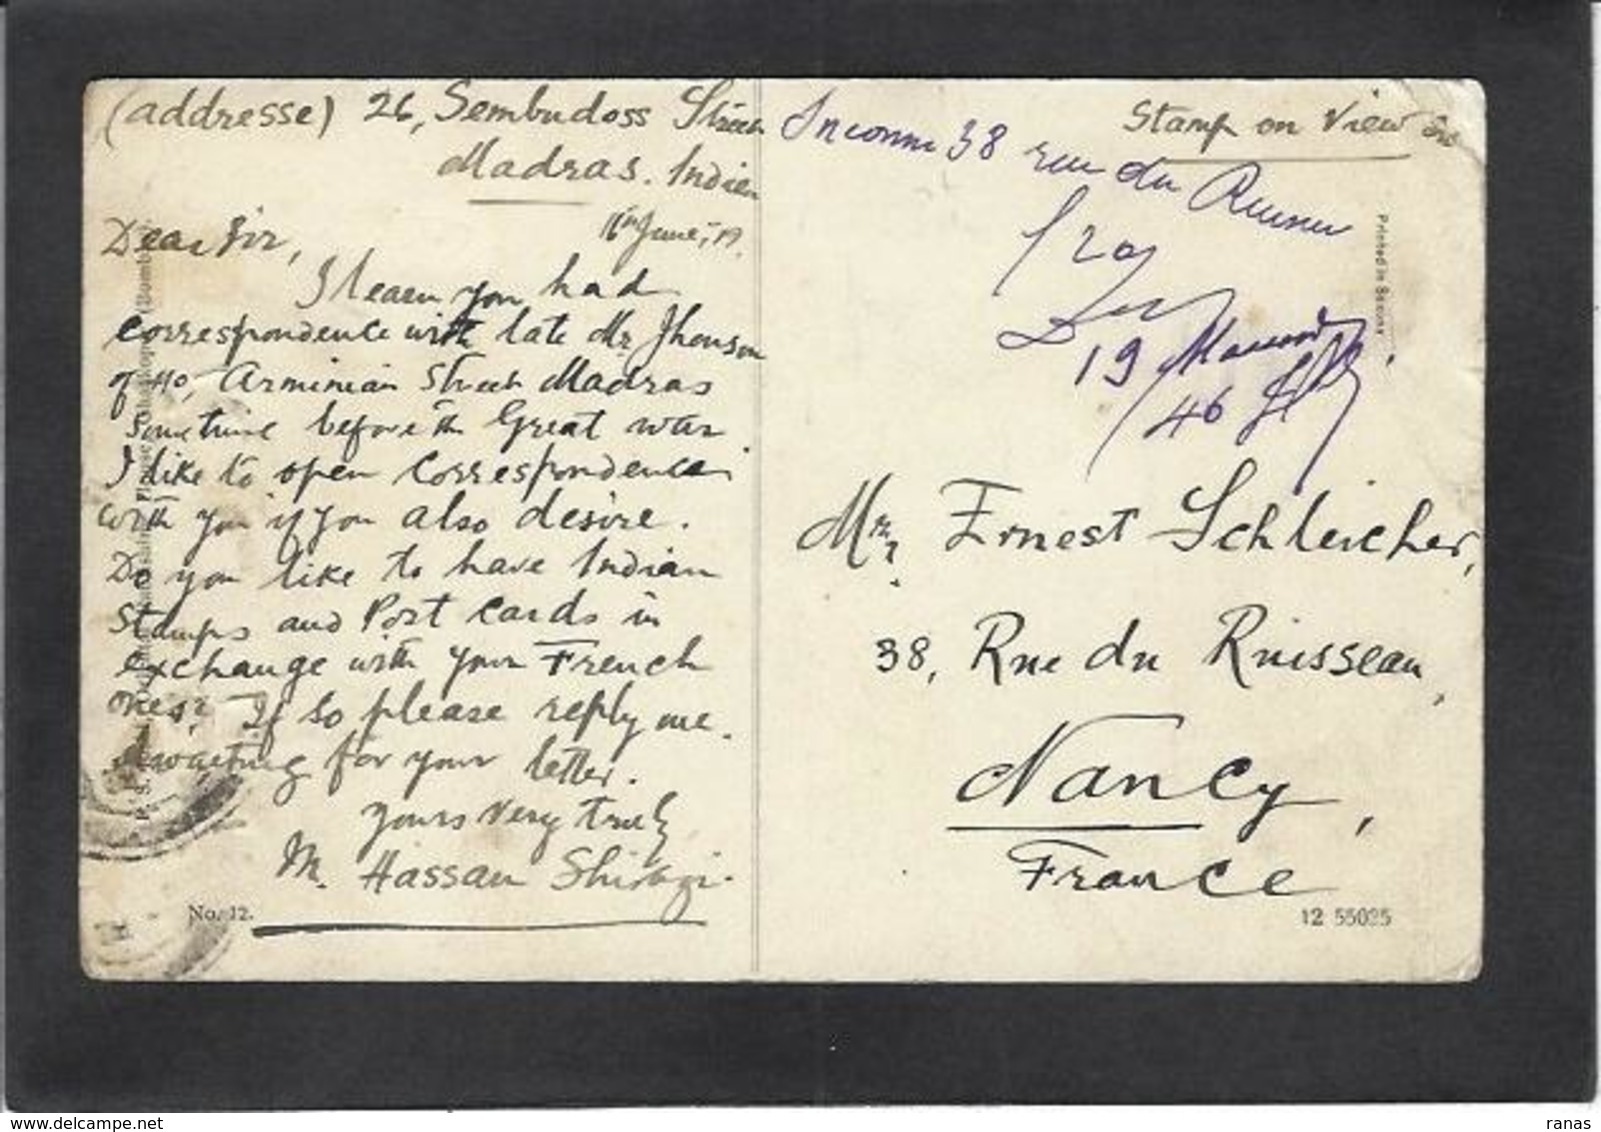 (addresse) 26, Sembudoss Street
Madras. Indien
16th June, 19.
Dear Sir,
I learn you had
correspondence with late Mr Jhonson
of 40, Arminian Street Madras
Sometime before the Great war
I like to open Correspondence
with you if you also desire.
Do you like to have Indian
Stamps and Post Cards in
exchange with your French
ones? If so please reply me.
Awaiting for your letter.
yours very truly
M. Hassan Shirazi.
No. 12.
Stamp on View
Inconnu 38 rue du
19
46
Printed in Saxony
Mr. Ernest Schleicher,
38, Rue du Ruisseau,
Nancy,
France
12 55025
ranas